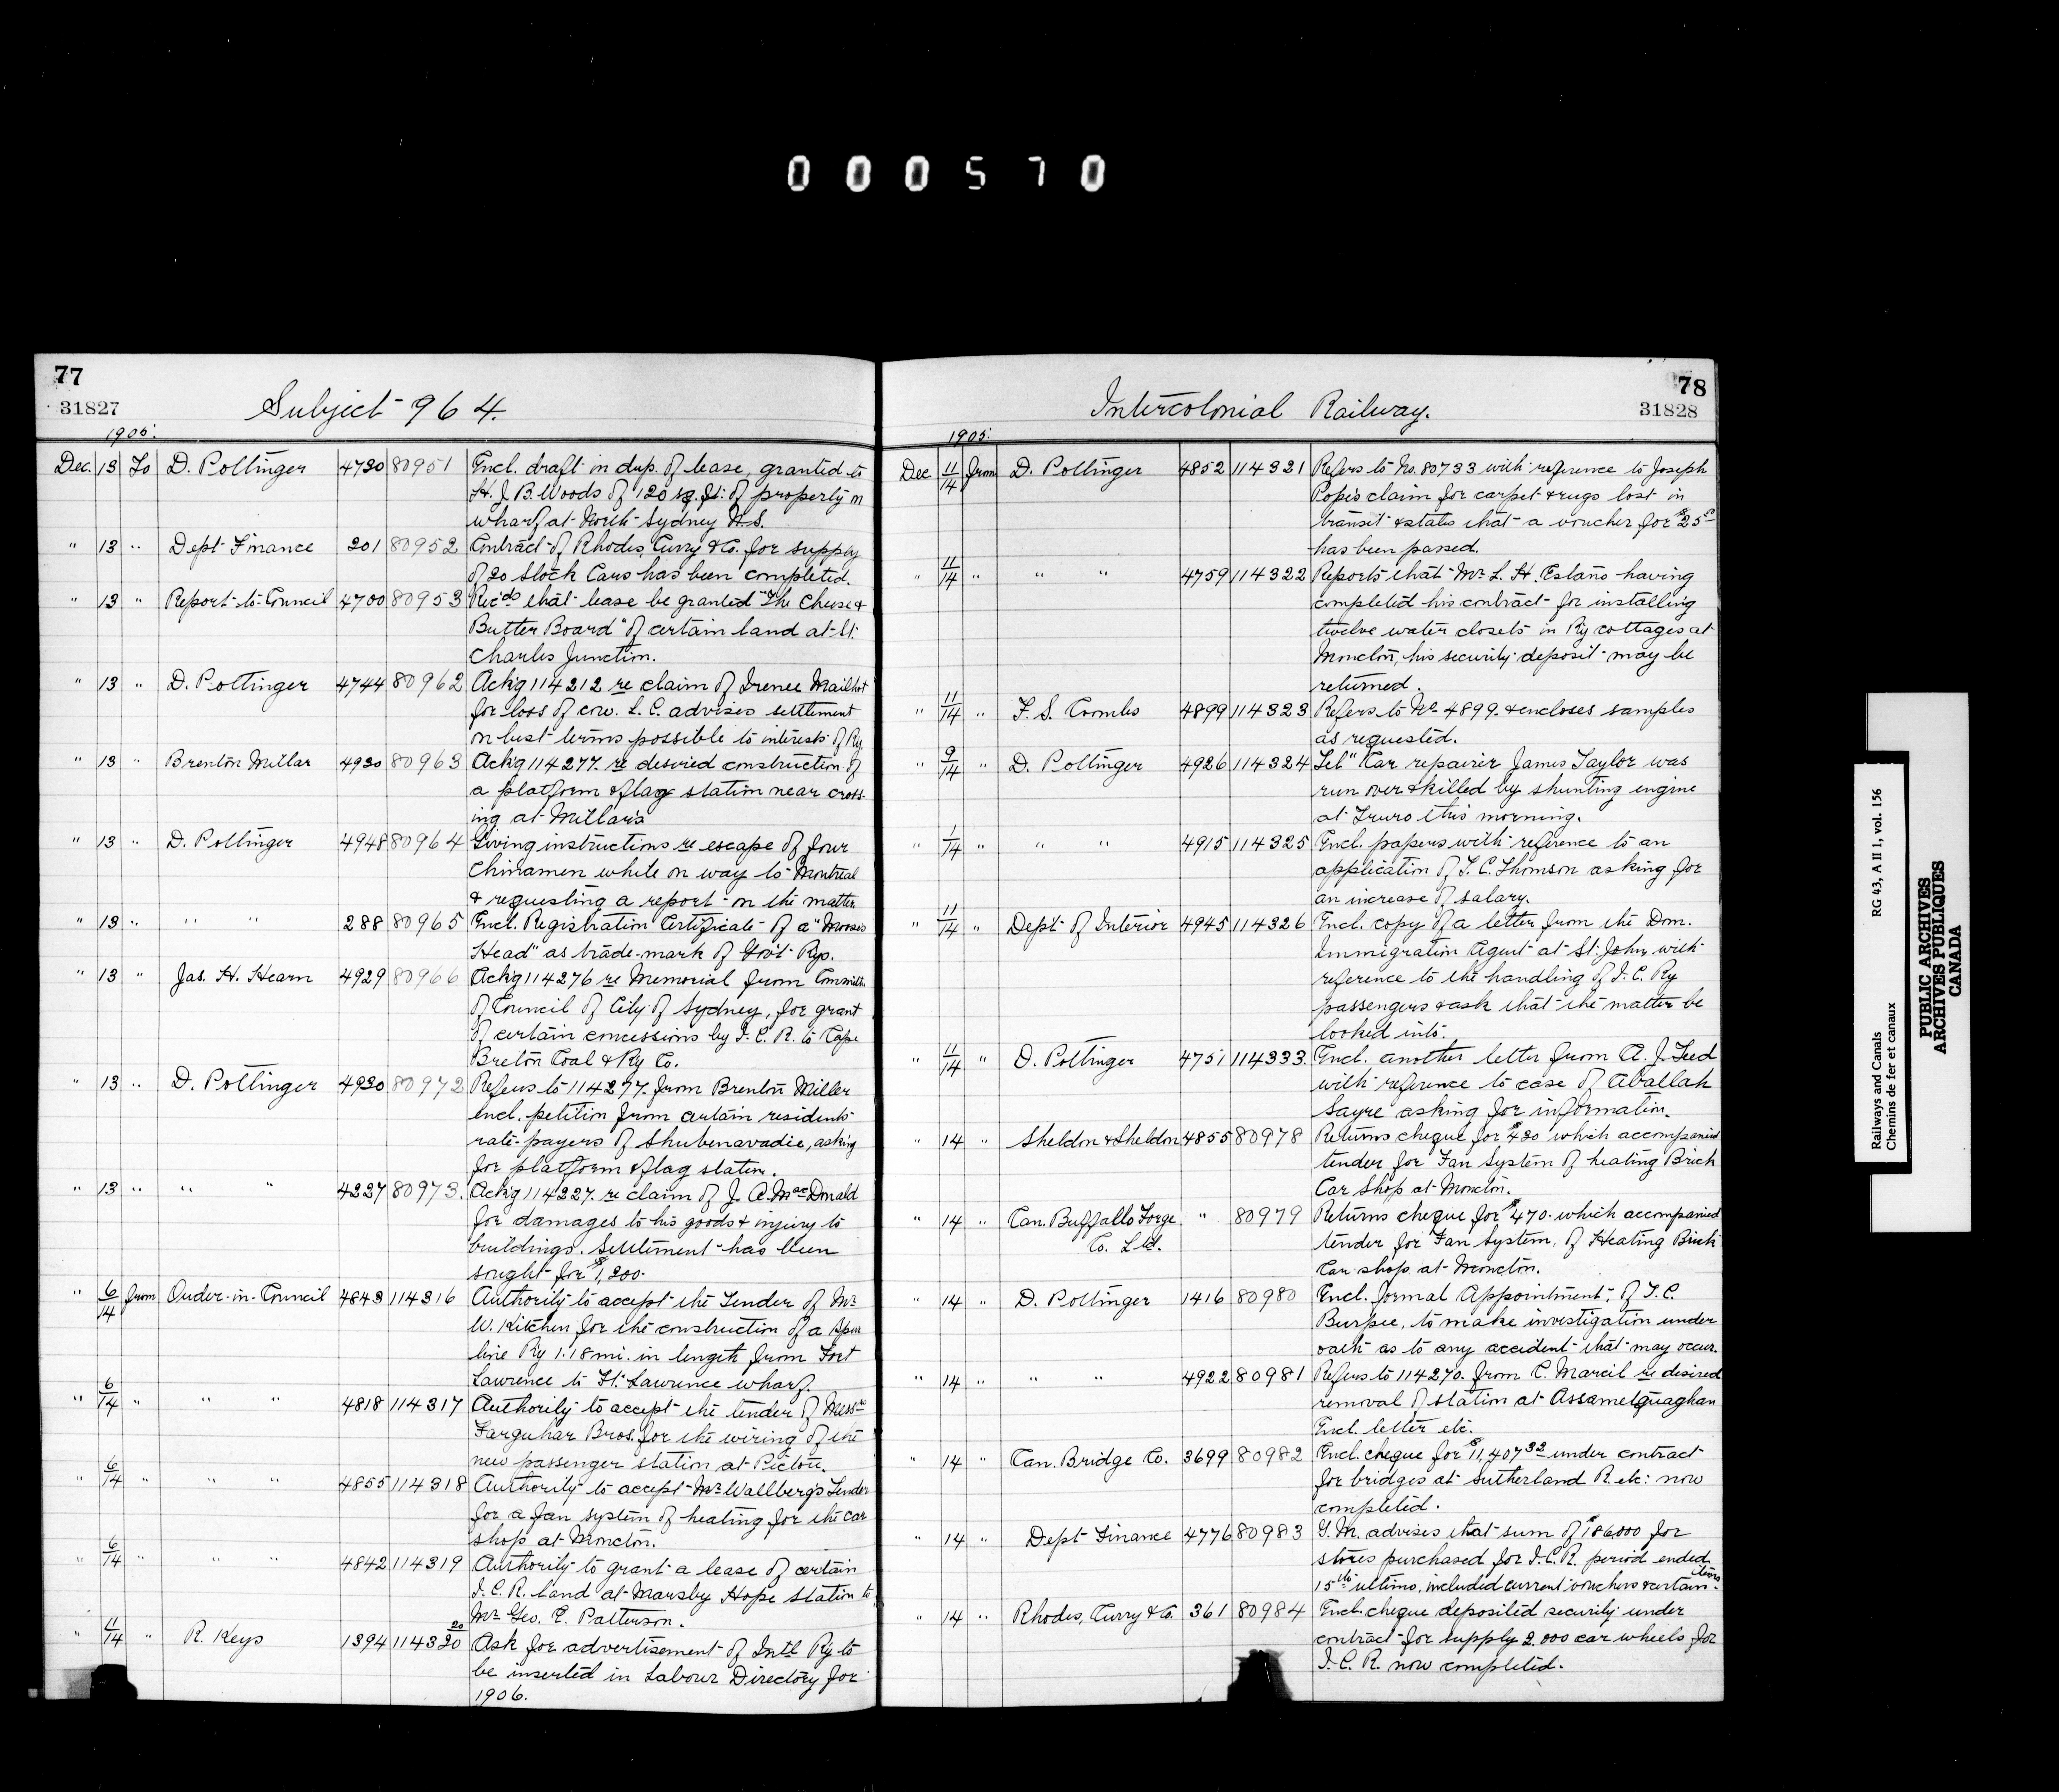 000570
77
31827
Subject 964.
1905.
Dec. 13 To D. Pottinger 4730 80951 Encl. draft in dup. of lease, granted to
H. J. B. Woods of 120 sq. ft. of property on
wharf at North Sydney N.S.
" 13 " Dept Finance 201 80952 Contract of Rhodes, Curry & Co. for supply
of 20 Stock Cars has been completed.
" 13 " Report-to-Council 4700 80953 Rec'ds that lease be granted "The Cheese &
Butter Board" of certain land at St.
Charles Junction.
" 13 " D. Pottinger 4744 80962 Ack'g 114212 re claim of Irenee Mailhot
for loss of cow. L. C. advises settlement
on best terms possible to interests of Ry.
" 13 " Brenton Millar 4930 80963 Ack'g 114277. re desired construction of
a platform & flag station near cross-
ing at Millar's
" 13 " D. Pottinger 4948 80964 Giving instructions re escape of four
Chinamen while on way to Montreal
& requesting a report on the matter
" 13 " " " 288 80965 Encl. Registration Certificate of a "Mooses
Head" as trade-mark of Gov't Rys.
" 13 " Jas. H. Hearn 4929 80966 Ack'g 114276 re Memorial from Committee
of Council of City of Sydney, for grant
of certain concessions by I. C. R. to Cape
Breton Coal & Ry Co.
" 13 " D. Pottinger 4930 80972 Refers to 114277. from Brenton Miller
encl. petition from certain residents
rate-payers of Shubenavadie, asking
for platform & flag station.
" 13 " " " 4227 80973. Ack'g 114227. re claim of J. A. MacDonald
for damages to his goods & injury to
buildings. Settlement has been
sought for $1,200.
" 6/14 from Order-in-Council 4843 114316 Authority to accept the Tender of Mr
W. Kitchen for the construction of a spur
line Ry 1.18 mi. in length from Fort
Lawrence to Ft. Lawrence wharf.
" 6/14 " " " 4818 114317 Authority to accept the tender of Messrs
Farquhar Bros. for the wiring of the
new passenger station at Pictou.
" 6/14 " " " 4855 114318 Authority to accept Mr Wallberg's Tender
for a fan system of heating for the car
shop at Moncton.
" 6/14 " " " 4842 114319 Authority to grant a lease of certain
I. C. R. land at Marshy Hope Station to
Mr Geo. E. Patterson.
" 11/14 " R. Keys 1394 114320 20 Ask for advertisement of Intl Ry to
be inserted in Labour Directory for
1906.
78
31828
Intercolonial Railway.
1905.
Dec 11/14 from D. Pottinger 4852 114321 Refers to No. 80733 with reference to Joseph
Pope's claim for carpet & rugs lost in
transit & states that a voucher for $25
has been passed.
" 11/14 " " " 4759 114322 Reports that Mr L. H. Estano having
completed his contract for installing
twelve water closets in Ry cottages at
Moncton, his security deposit may be
returned.
" 11/14 " F. S. Combs 4899 114323 Refers to No 4899. & encloses samples
as requested.
" 9/14 " D. Pottinger 4926 114324 Tel" Car repairer James Taylor was
run over & killed by shunting engine
at Truro this morning.
" 1/14 " " " 4915 114325 Encl. papers with reference to an
application of T. C. Thomson asking for
an increase of salary.
" 11/14 " Dept of Interior 4945 114326 Encl. copy of a letter from the Dom.
Immigration Agent at St. John, with
reference to the handling of I. C. Ry
passengers & ask that the matter be
looked into.
" 11/14 " D. Pottinger 4751 114333. Encl. another letter from A. J. Teed
with reference to case of Aballah
Sayre asking for information.
" 14 " Sheldon & Sheldon 4855 80978 Returns cheque for $420 which accompanied
tender for Fan System of heating Brick
Car Shop at Moncton.
" 14 " Can. Buffallo Forge " 80979 Returns cheque for $470. which accompanied
Co. Ltd. tender for Fan System, of Heating Brick
Car shop at Moncton.
" 14 " D. Pottinger 1416 80980 Encl. formal Appointment, of T. C.
Burpee, to make investigation under
oath as to any accident that may occur.
" 14 " " " 4922 80981 Refers to 114270. from C. Marcil re desired
removal of station at Assametquaghan
Encl. letter etc.
" 14 " Can. Bridge Co. 3699 80982 Encl. cheque for $11,407.32 under contract
for bridges at Sutherland R. etc: now
completed.
" 14 " Dept Finance 4776 80983 G. M. advises that sum of $186000 for
stores purchased for I. C. R. period ended
15th ultimo, included current vouchers & certain items.
" 14 " Rhodes, Curry & Co. 361 80984 Encl. cheque deposited security under
contract for supply 2.000 car wheels for
I. C. R. now completed.
Railways and Canals RG 43, A II 1, vol. 156
Chemins de fer et canaux
PUBLIC ARCHIVES
ARCHIVES PUBLIQUES
CANADA